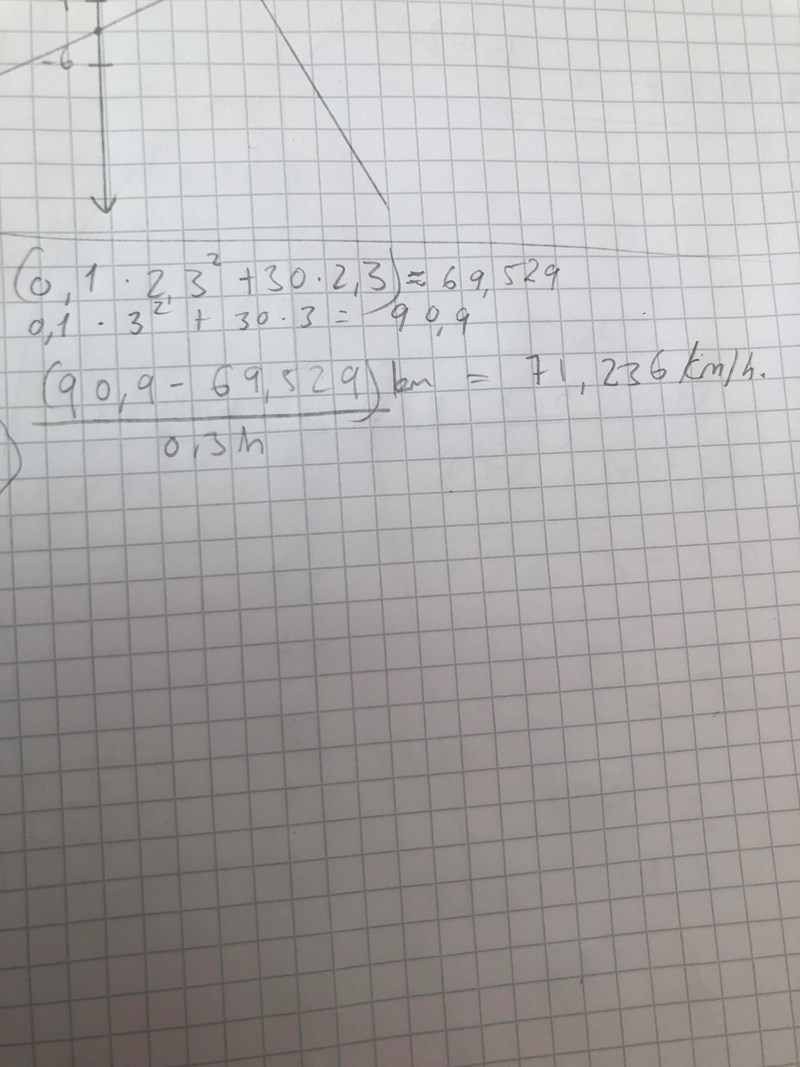 -6
(0,1 · 2,3² + 30 · 2,3) = 69,529
0,1 · 3² + 30 · 3 = 90,9
(90,9 - 69,529) km = 71,236 km/h.
0,3h